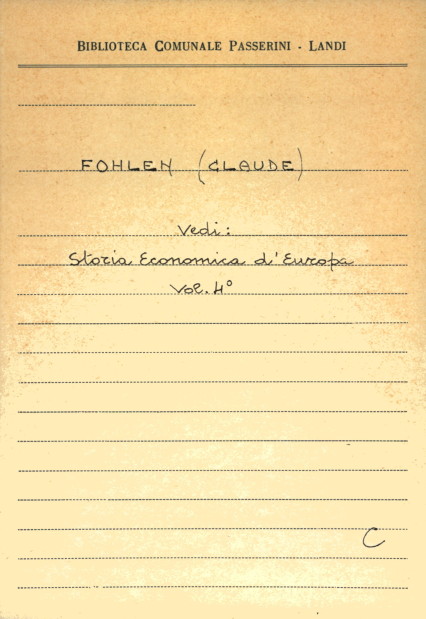 BIBLIOTECA COMUNALE PASSERINI - LANDI
FOHLEN (CLAUDE)
Vedi:
Storia Economica d'Europa
Vol. 4°
C